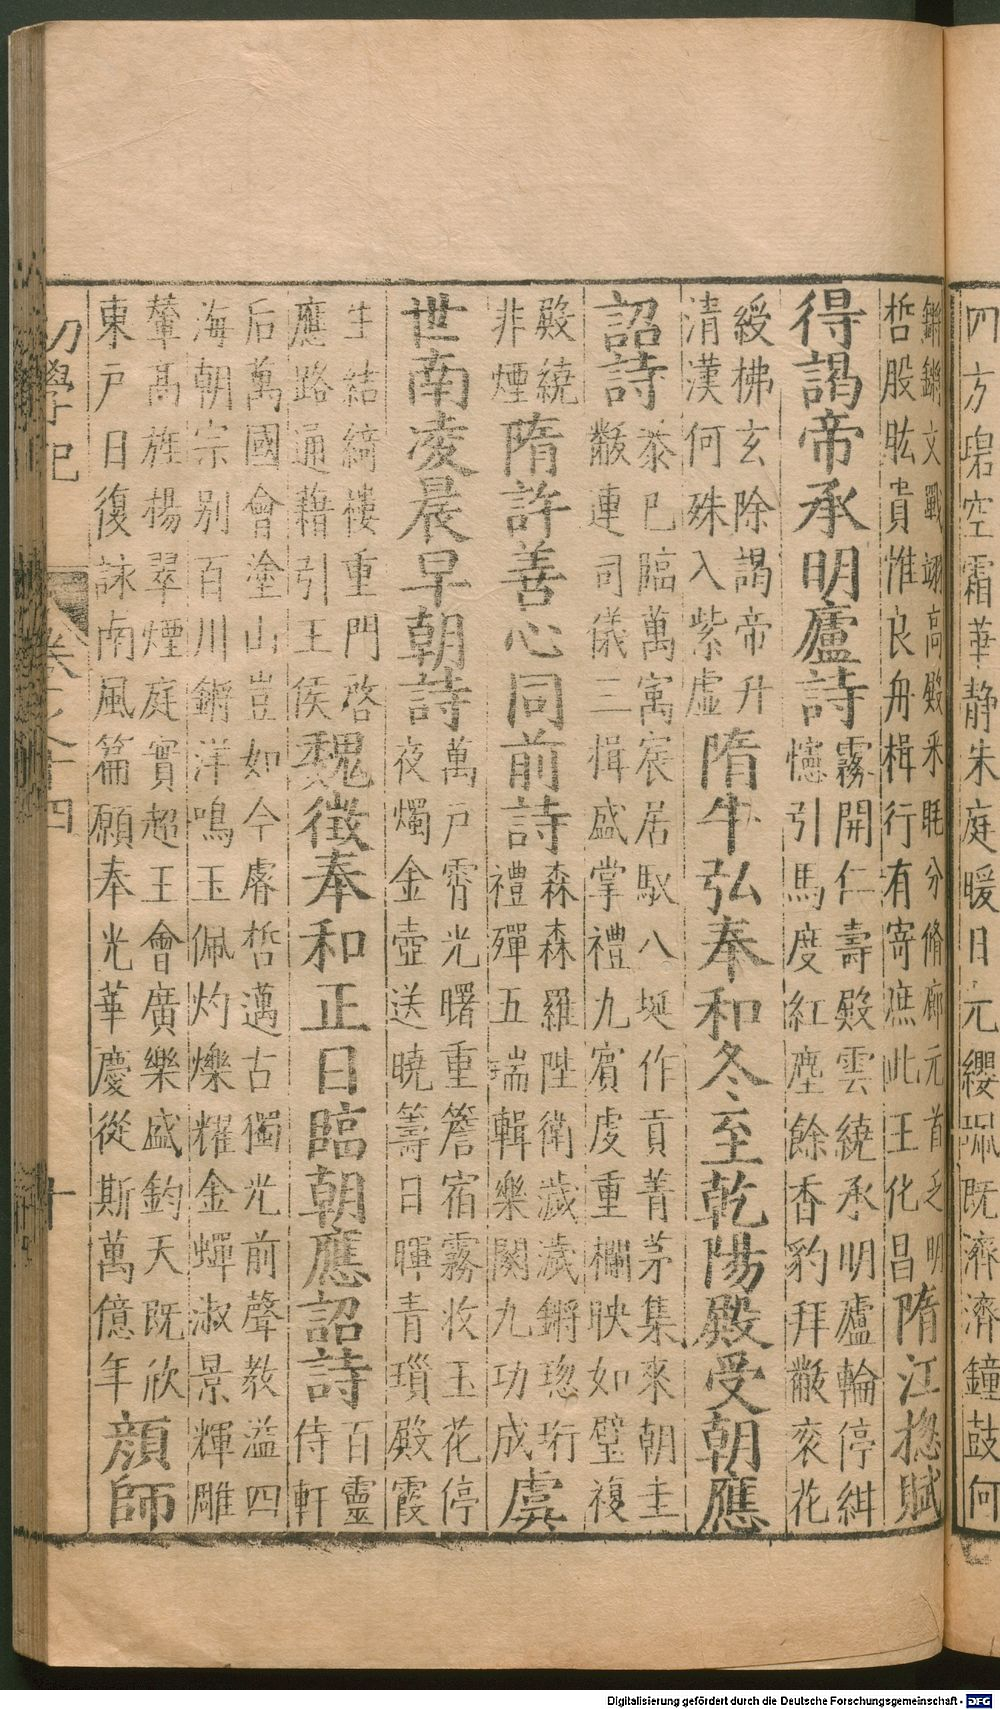 四方跽空霜華静朱庭暖日元纓珮既濟濟鐘鼓何
鏘鏘文戰翊高殿釆眊分脩廊元首乏明
哲股肱貴惟良舟楫行有寄庶此王化昌
隋江摠賦
得謁帝承明廬詩
霧開仁壽殿雲繞承明廬輪停紺
幰引馬度紅塵餘香豹拜黻衮花
綬拂玄除謁帝升
清漢何殊入紫虛
隋牛弘奉和冬至乾陽殿受朝應
詔詩
恭已臨萬寓宸居馭八埏作貢菁茅集來朝圭
黻連司儀三揖盛掌禮九賓虔重欄映如璧複
殿繞
非煙
隋許善心同前詩
森森羅陛衛濊濊鏘璁珩
禮殫五端輯樂闋九功成
虞
世南凌晨早朝詩
萬戸霄光曙重簷宿霧收玉花停
夜燭金壺送曉籌日暉青瑣殿霞
生結綺樓重門啓
應路通藉引王侯
魏徵奉和正日臨朝應詔詩
百靈
侍軒
后萬國會塗山豈如今睿哲邁古獨光前聲教溢四
海朝宗别百川鏘洋鳴玉佩灼爍耀金蟬淑景輝雕
輦高旌楊翠煙庭實超王會廣樂盛鈞天既欣
東戸日復詠南風篇願奉光華慶從斯萬億年
顔師
初學記 卷之十四 十
Digitalisierung gefördert durch die Deutsche Forschungsgemeinschaft - DFG